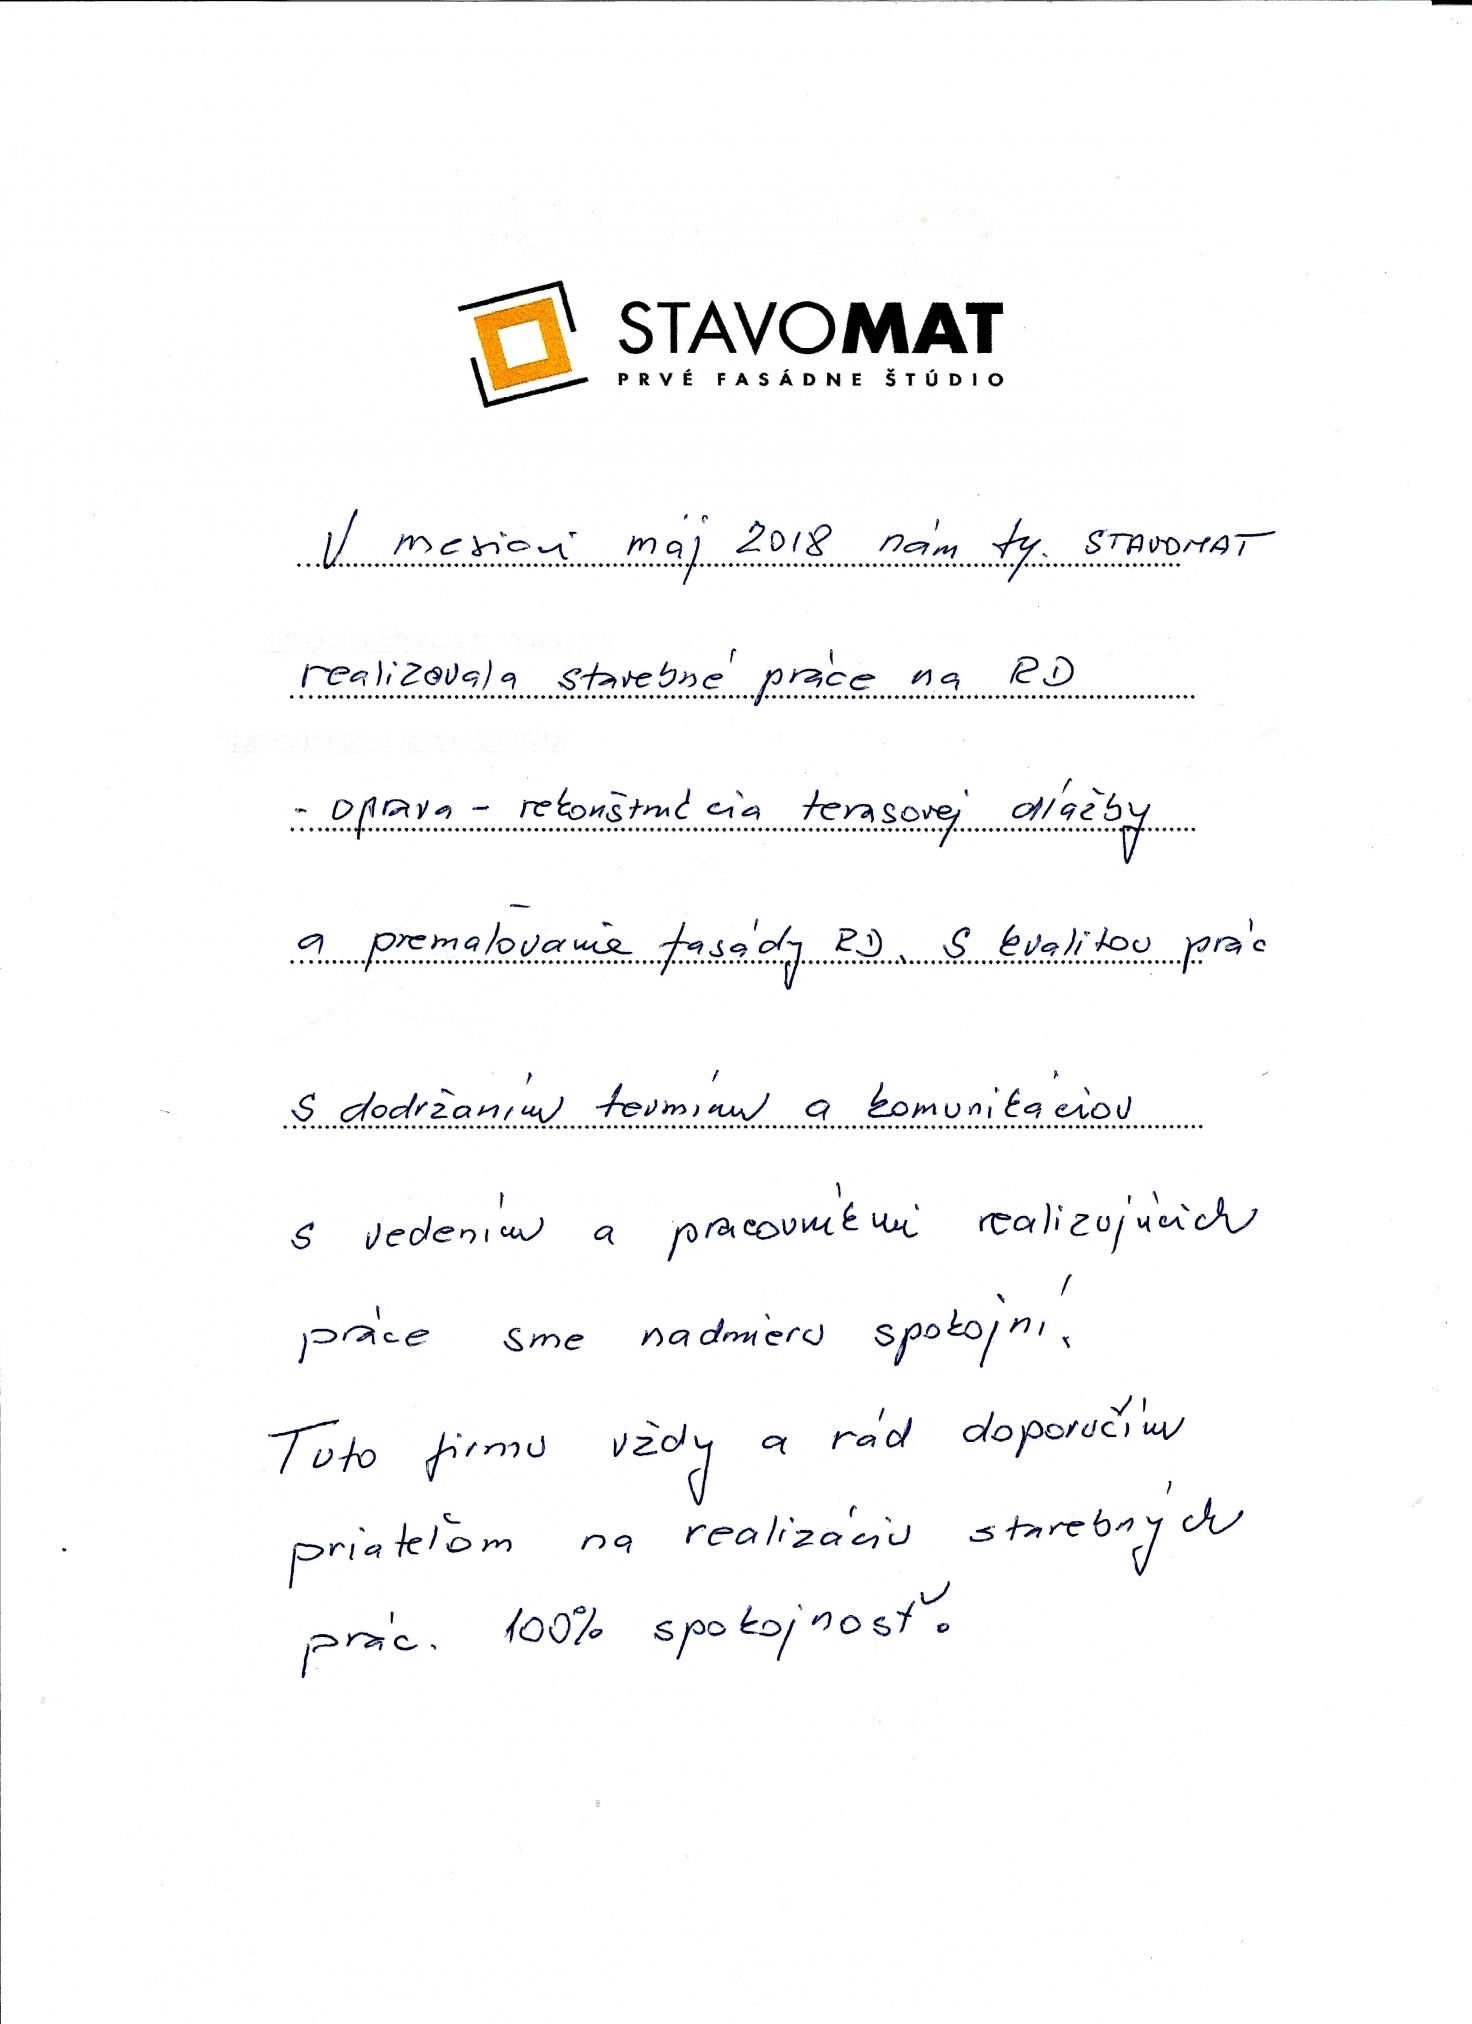 STAVOMAT
PRVÉ FASÁDNE ŠTÚDIO
V mesiaci máj 2018 nám fy. STAVOMAT
realizovala stavebné práce na RD
- oprava - rekonštrukcia terasovej dlažby
a premaľovanie fasády RD. S kvalitou prác
s dodržaním termínu a komunikáciou
s vedením a pracovníkmi realizujúcich
práce sme nadmieru spokojní.
Túto firmu vždy a rád doporučím
priateľom na realizáciu stavebných
prác. 100% spokojnosť.